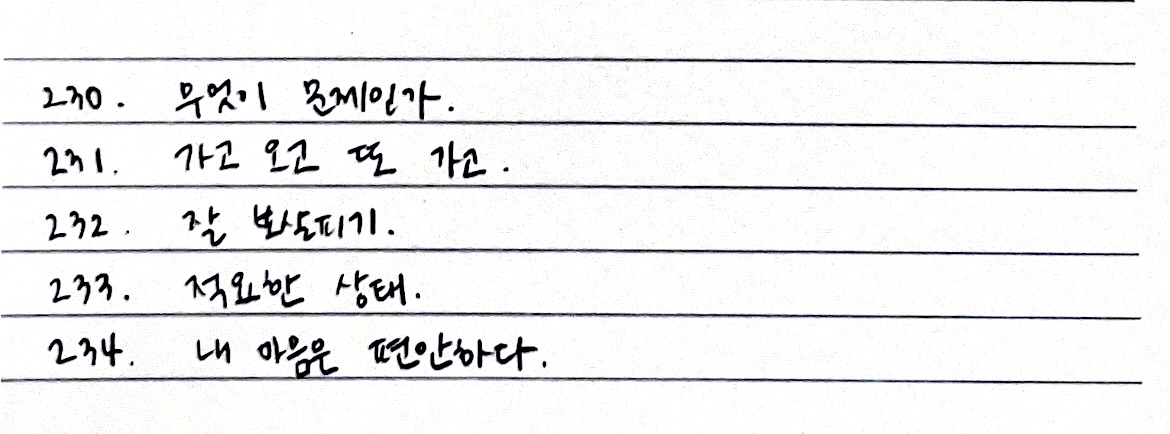 230. 무엇이 문제인가.
231. 가고 오고 또 가고.
232. 잘 보살피기.
233. 적요한 상태.
234. 내 마음은 편안하다.